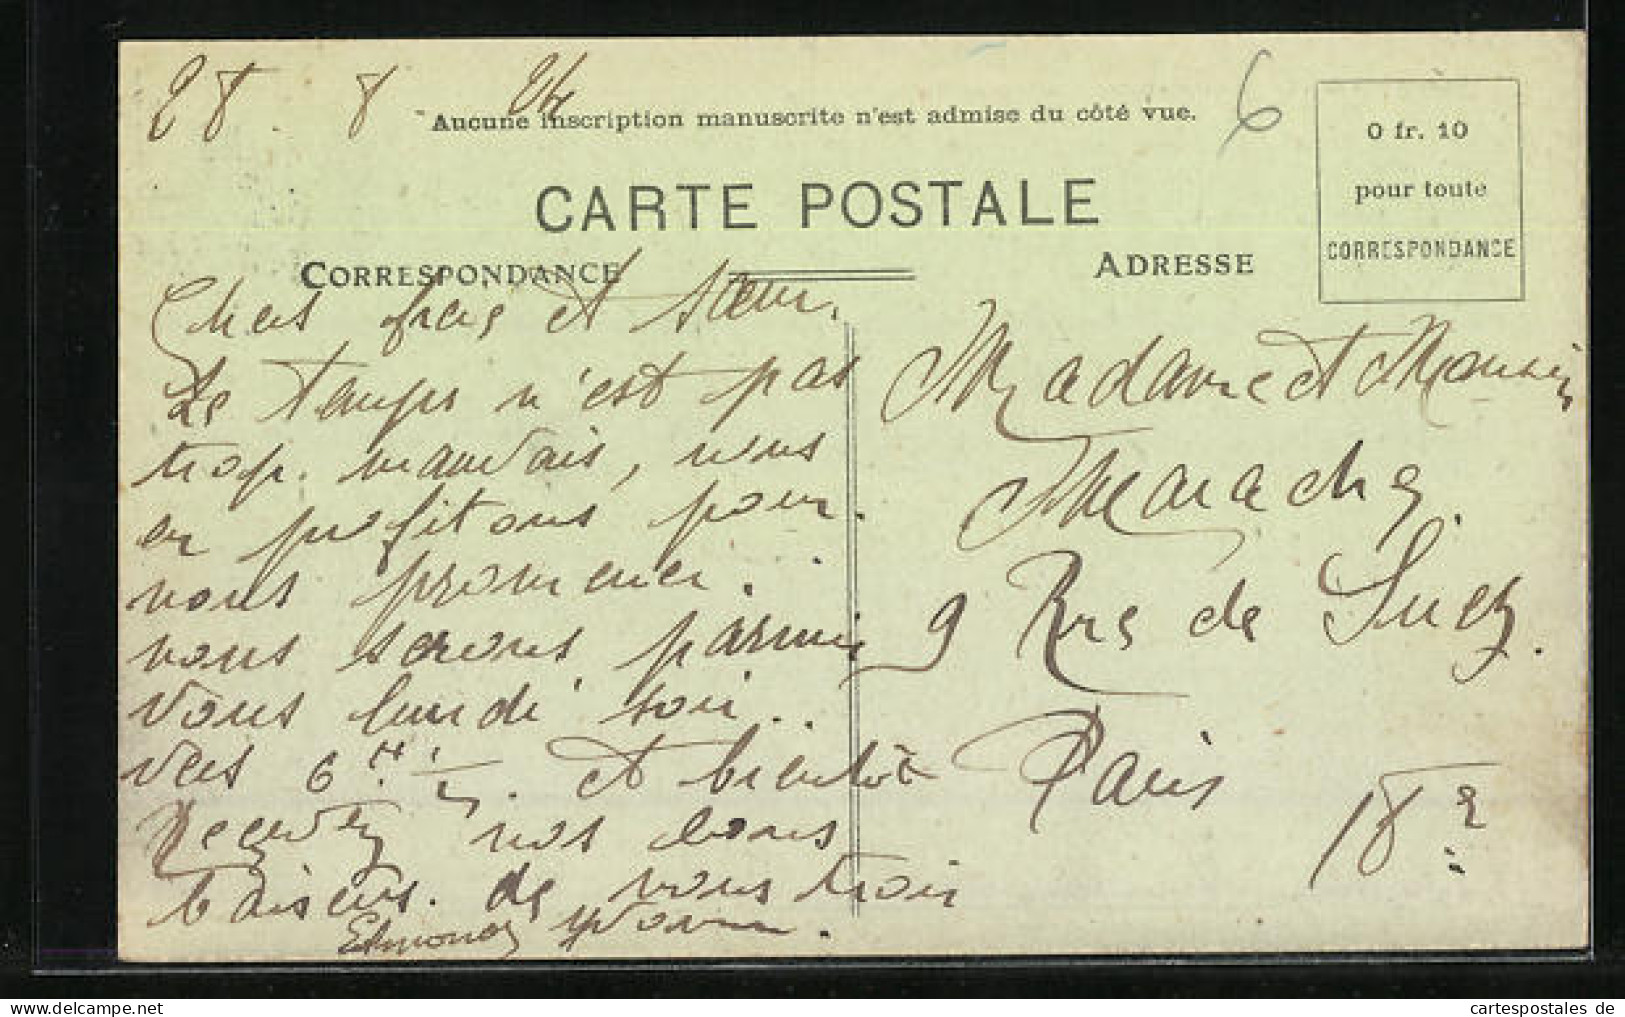 28. 8 24
Aucune inscription manuscrite n'est admise du côté vue.
6
0 fr. 10
pour toute
CORRESPONDANCE
CARTE POSTALE
CORRESPONDANCE
ADRESSE
Chers frère et sœur.
Le temps n'est pas
trop. mauvais, nous
en profitons pour.
nous promener.
nous serons parmis
vous lundi soir..
vers 6 H 1/2. et bientôt
Recevez nos bons
baisers. de nous trois
Edmond Yvonne.
Madame et Monsieur
9 Rue de Suez.
Paris
18e
cartespostales de